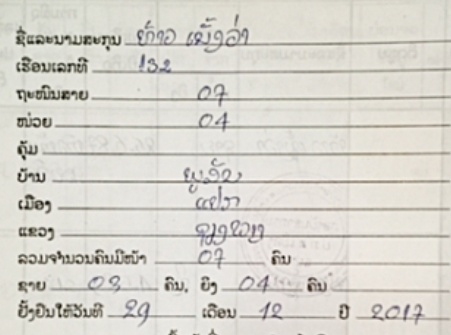 ຊື່ແລະນາມສະກຸນ ທ້າວ ເນັ້ງວ່າ
ເຮືອນເລກທີ 132
ຖະໜົນສາຍ 07
ໜ່ວຍ 04
ຄຸ້ມ
ບ້ານ
ເມືອງ ແປກ
ແຂວງ ຊຽງຂວາງ
ລວມຈຳນວນຄົນມີໜ້າ 07 ຄົນ
ຊາຍ 03 ຄົນ, ຍິງ 04 ຄົນ
ຢັ້ງຢືນໃຫ້ວັນທີ 29 ເດືອນ 12 ປີ 2017